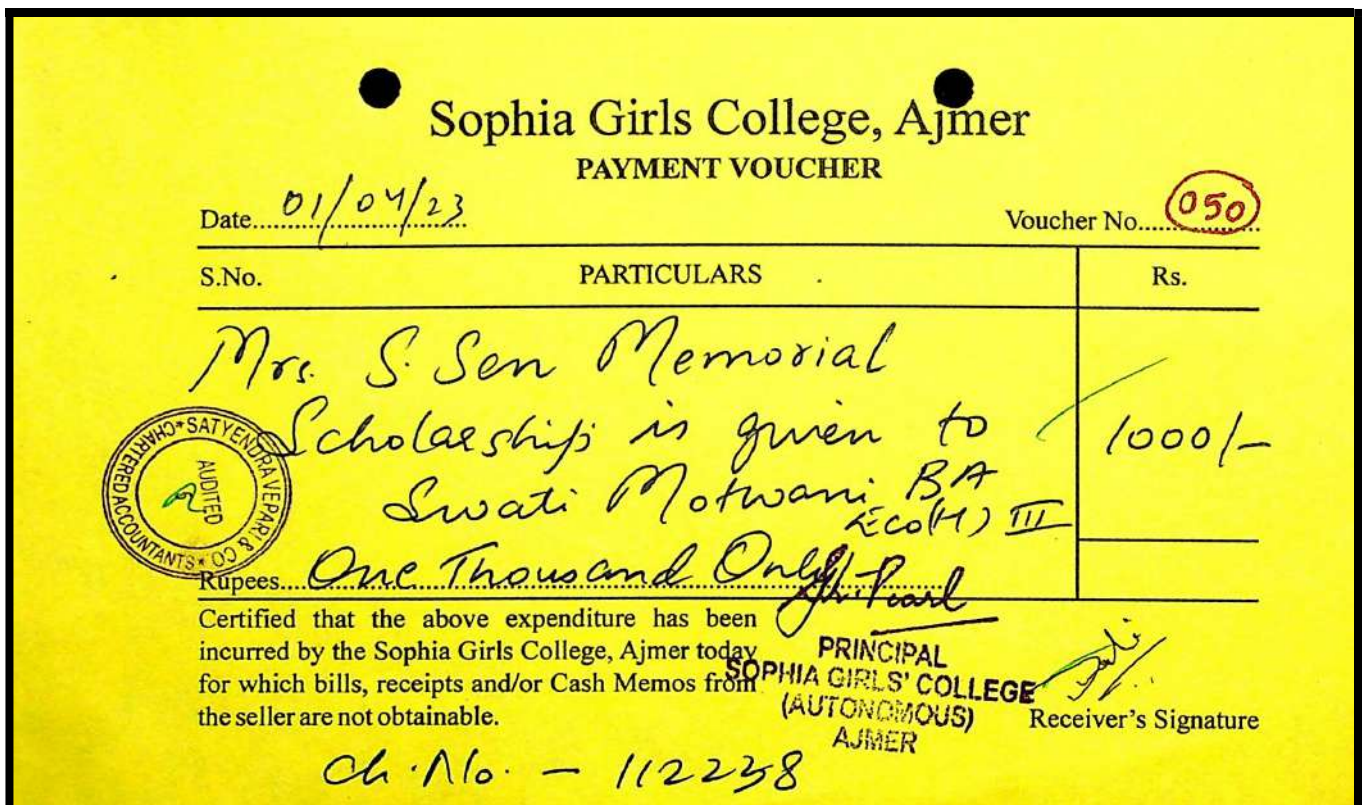 Sophia Girls College, Ajmer
PAYMENT VOUCHER
Date....01/04/23
Voucher No.....050
S.No. PARTICULARS Rs.
Mrs. S. Sen Memorial
Scholarship is given to 1000/-
Swati Motwani BA
Eco(H) III
Rupees....One Thousand Only
CHARTERED ACCOUNTANTS * SATYENDRA VEPARI & CO. *
AUDITED
Certified that the above expenditure has been
incurred by the Sophia Girls College, Ajmer today
for which bills, receipts and/or Cash Memos from
the seller are not obtainable.
Pearl
PRINCIPAL
SOPHIA GIRLS' COLLEGE
(AUTONOMOUS)
AJMER
Receiver's Signature
Ch. No. - 112238